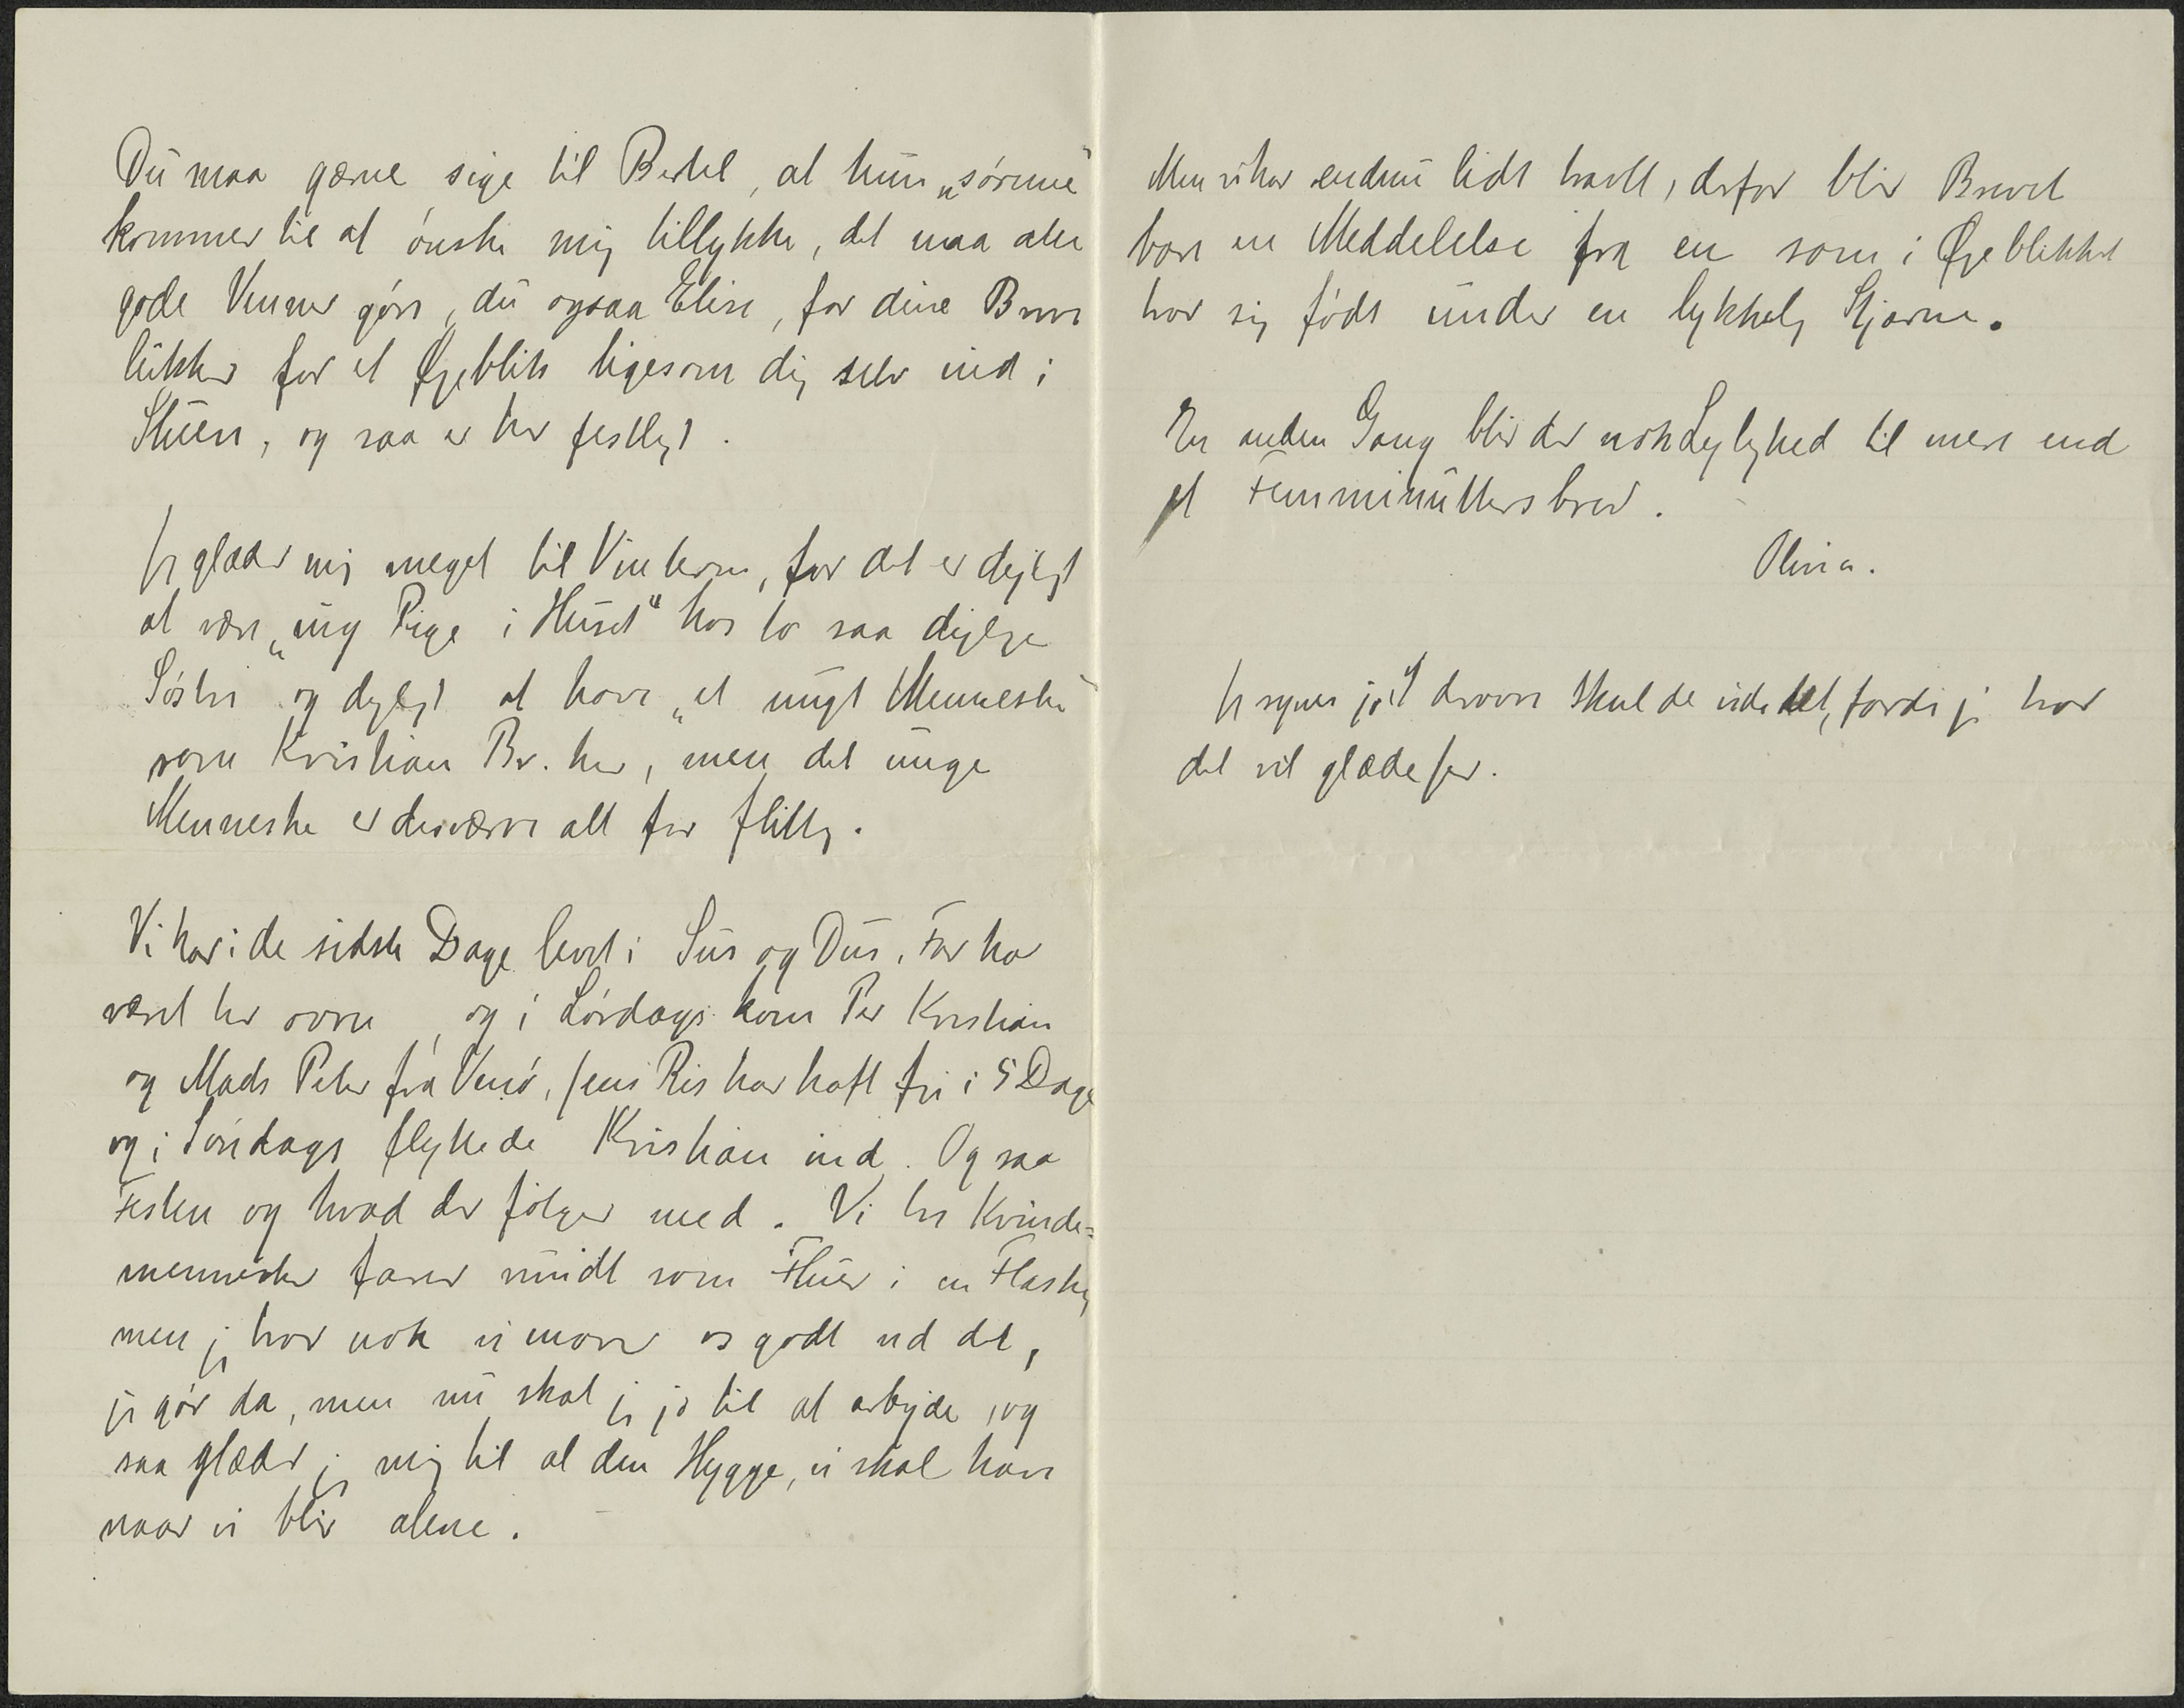 Du maa gærne sige til Bertel, at hun „sørme“
kommer til at ønske mig tillykke, det maa alle
gode Venner gøre, du ogsaa Elise, for dine Breve
lukker for et Øjeblik ligesom dig selv ind i
Stuen, og saa er her festligt.
Jeg glæder mig meget til Vinteren, for det er dejligt
at være „ung Pige i Huset“ hos to saa dejlige
Søstre og dejligt at have „et ungt Menneske“
som Kristian Br. her, men det unge
Menneske er desværre alt for flittig.
Vi har i de sidste Dage levet i Sus og Dus, Far har
været her ovre, og i Lørdags kom Per Kristian
og Mads Peter fra Venø, Jens Ris har haft fri i 5 Dage
og i Søndags flyttede Kristian ind. Og saa
Festen og hvad der følger med. Vi tre Kvinde=
mennesker farer rundt som Fluer i en Flaske,
men jeg tror nok vi morer os godt ved det,
jeg gør da, men nu skal jeg jo til at arbejde, og
saa glæder jeg mig til al den Hygge, vi skal have
naar vi blir alene.
Men vi har endnu lidt travlt, derfor blir Brevet
bare en Meddelelse fra en som i Øjeblikket
tror sig født under en lykkelig Stjærne.
En anden Gang blir der nok Lejlighed til mere end
et Femminutters brev.
Olivia.
Jeg synes jo I derovre skulde vide det, fordi jeg tror
det vil glæde Jer.